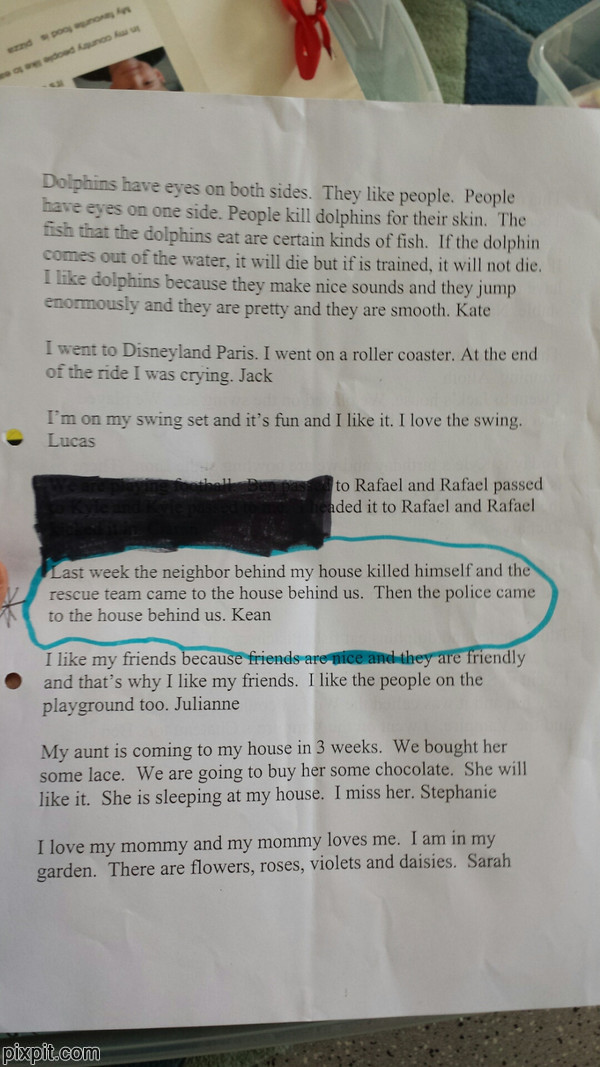 My favourite food is pizza
In my country people like to eat
It's
Dolphins have eyes on both sides. They like people. People
have eyes on one side. People kill dolphins for their skin. The
fish that the dolphins eat are certain kinds of fish. If the dolphin
comes out of the water, it will die but if is trained, it will not die.
I like dolphins because they make nice sounds and they jump
enormously and they are pretty and they are smooth. Kate
I went to Disneyland Paris. I went on a roller coaster. At the end
of the ride I was crying. Jack
I'm on my swing set and it's fun and I like it. I love the swing.
Lucas
We are playing football. Ben passed to Rafael and Rafael passed
to Kyle and Kyle passed to me. I headed it to Rafael and Rafael
Last week the neighbor behind my house killed himself and the
rescue team came to the house behind us. Then the police came
to the house behind us. Kean
I like my friends because friends are nice and they are friendly
and that's why I like my friends. I like the people on the
playground too. Julianne
My aunt is coming to my house in 3 weeks. We bought her
some lace. We are going to buy her some chocolate. She will
like it. She is sleeping at my house. I miss her. Stephanie
I love my mommy and my mommy loves me. I am in my
garden. There are flowers, roses, violets and daisies. Sarah
pixpit.com